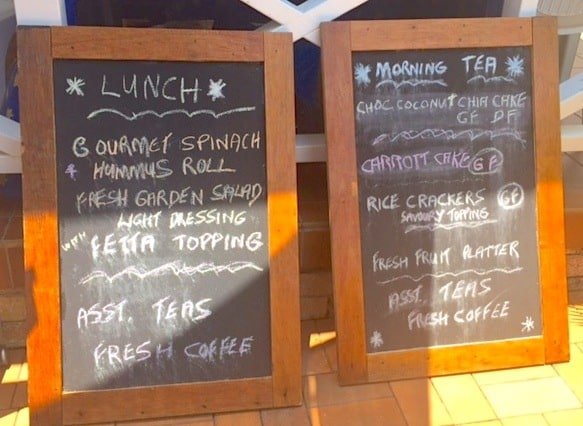 * LUNCH *
GOURMET SPINACH
& HUMMUS ROLL
FRESH GARDEN SALAD
LIGHT DRESSING
WITH FETTA TOPPING
ASST. TEAS
FRESH COFFEE
* MORNING TEA *
CHOC COCONUT CHIA CAKE
GF DF
CARROTT CAKE GF
RICE CRACKERS GF
SAVOURY TOPPING
FRESH FRUIT PLATTER
ASST. TEAS
FRESH COFFEE